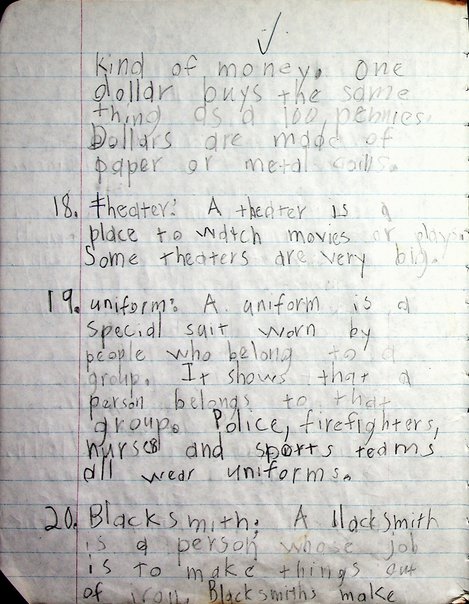 kind of money. One
dollar buys the same
thing as a 100 pennies.
Dollars are made of
paper or metal coins.
18. theater: A theater is a
place to watch movies or plays.
Some theaters are very big.
19. uniform: A uniform is a
special suit worn by
people who belong to a
group. It shows that a
person belongs to that
group. Police, firefighters,
nurses and sports teams
all wear uniforms.
20. Blacksmith: A blacksmith
is a person whose job
is to make things out
of iron. Blacksmiths make